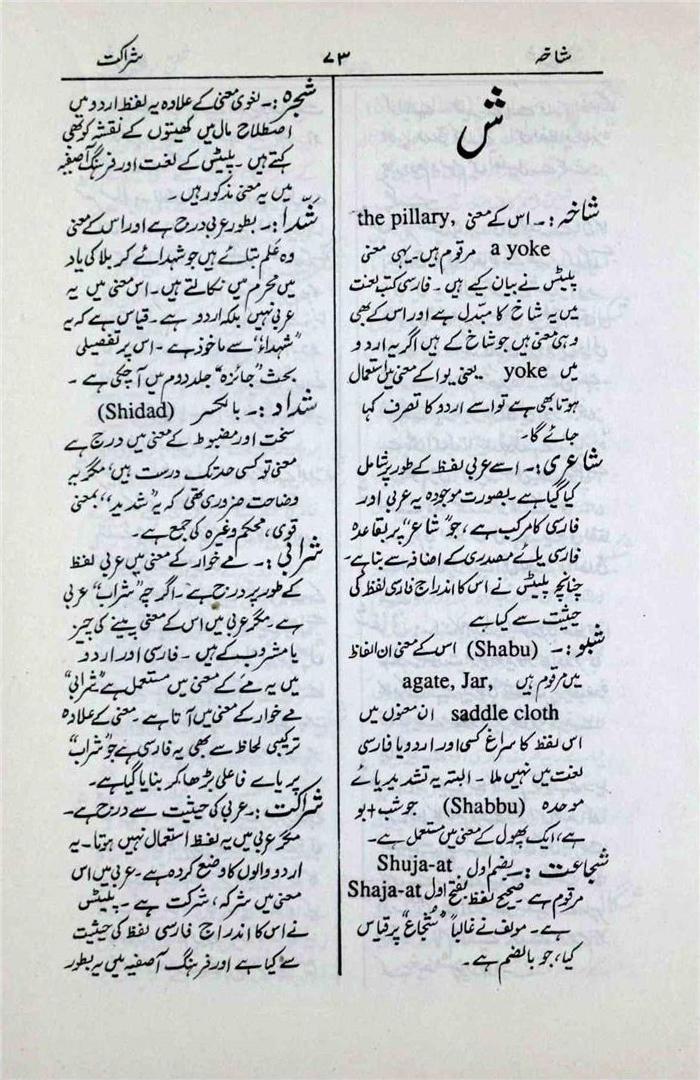 شاخہ
۷۳
شراکت
ش
شاخہ :۔ اس کے معنی the pillary,
a yoke مرقوم ہیں۔ یہی معنی
پلیٹس نے بیان کیے ہیں۔ فارسی کتب لغت
میں یہ شاخ کا مبدل ہے اور اس کے بھی
وہی معنی ہیں جو شاخ کے ہیں اگر یہ اردو
میں yoke یعنی یوا کے معنی میں استعمال
ہوتا بھی ہے تو اسے اردو کا تصرف کہا
جائے گا۔
شاعری :۔ اسے عربی لفظ کے طور پر شامل
کیا گیا ہے۔ بصورت موجودہ یہ عربی اور
فارسی کا مرکب ہے، جو "شاعر" پر بقاعدہ
فارسی یائے مصدری کے اضافہ سے بنا ہے۔
چنانچہ پلیٹس نے اس کا اندراج فارسی لفظ کی
حیثیت سے کیا ہے
شبو :۔ (Shabu) اس کے معنی ان الفاظ
میں مرقوم ہیں agate, Jar,
saddle cloth ان معنوں میں
اس لفظ کا سراغ کسی اور اردو یا فارسی
لغت میں نہیں ملا۔ البتہ یہ تشدید بائے
موحدہ (Shabbu) جو شب + بو
ہے، ایک پھول کے معنی میں مستعمل ہے۔
شجاعت :۔ بضم اول Shuja-at
مرقوم ہے۔ صحیح لفظ بفتح اول Shaja-at
ہے۔ مولف نے غالباً "شُجاع" پر قیاس
کیا، جو بالضم ہے۔
شجرہ :۔ لغوی معنی کے علاوہ یہ لفظ اردو میں
اصطلاح مال میں کھیتوں کے نقشہ کو بھی
کہتے ہیں۔ پلیٹس کے لغت اور فرہنگ آصفیہ
میں یہ معنی مذکور ہیں۔
شدا :۔ بطور عربی درج ہے اور اس کے معنی
وہ عَلم بتائے ہیں جو شہدائے کربلا کی یاد
میں محرم میں نکالتے ہیں۔ اس معنی میں یہ
عربی نہیں بلکہ اردو ہے۔ قیاس ہے کہ یہ
"شہداء" سے ماخوذ ہے۔ اس پر تفصیلی
بحث "جائزہ" جلد دوم میں آچکی ہے۔
شداد :۔ بالکسر (Shidad)
سخت اور مضبوط کے معنی میں درج ہے
معنی تو کسی حد تک درست ہیں، مگر یہ
وضاحت ضروری تھی کہ یہ "شدید" بمعنی
قوی، محکم وغیرہ کی جمع ہے۔
شرابی :۔ مے خوار کے معنی میں عربی لفظ
کے طور پر درج ہے۔ اگرچہ "شراب" عربی
ہے مگر عربی میں اس کے معنی پینے کی چیز
یا مشروب کے ہیں۔ فارسی اور اردو
میں یہ مے کے معنی میں مستعمل ہے "شرابی"
مے خوار کے معنی میں آتا ہے۔ معنی کے علاوہ
ترکیبی لحاظ سے بھی یہ فارسی ہے جو "شراب"
پر یائے فاعلی بڑھا کر بنایا گیا ہے۔
شراکت :۔ عربی کی حیثیت سے درج ہے۔
مگر عربی میں یہ لفظ استعمال نہیں ہوتا۔ یہ
اردو والوں کا وضع کردہ ہے۔ عربی میں اس
معنی میں شرکہ، شرکت ہے۔ پلیٹس
نے اس کا اندراج فارسی لفظ کی حیثیت
سے کیا ہے اور فرہنگ آصفیہ میں یہ بطور